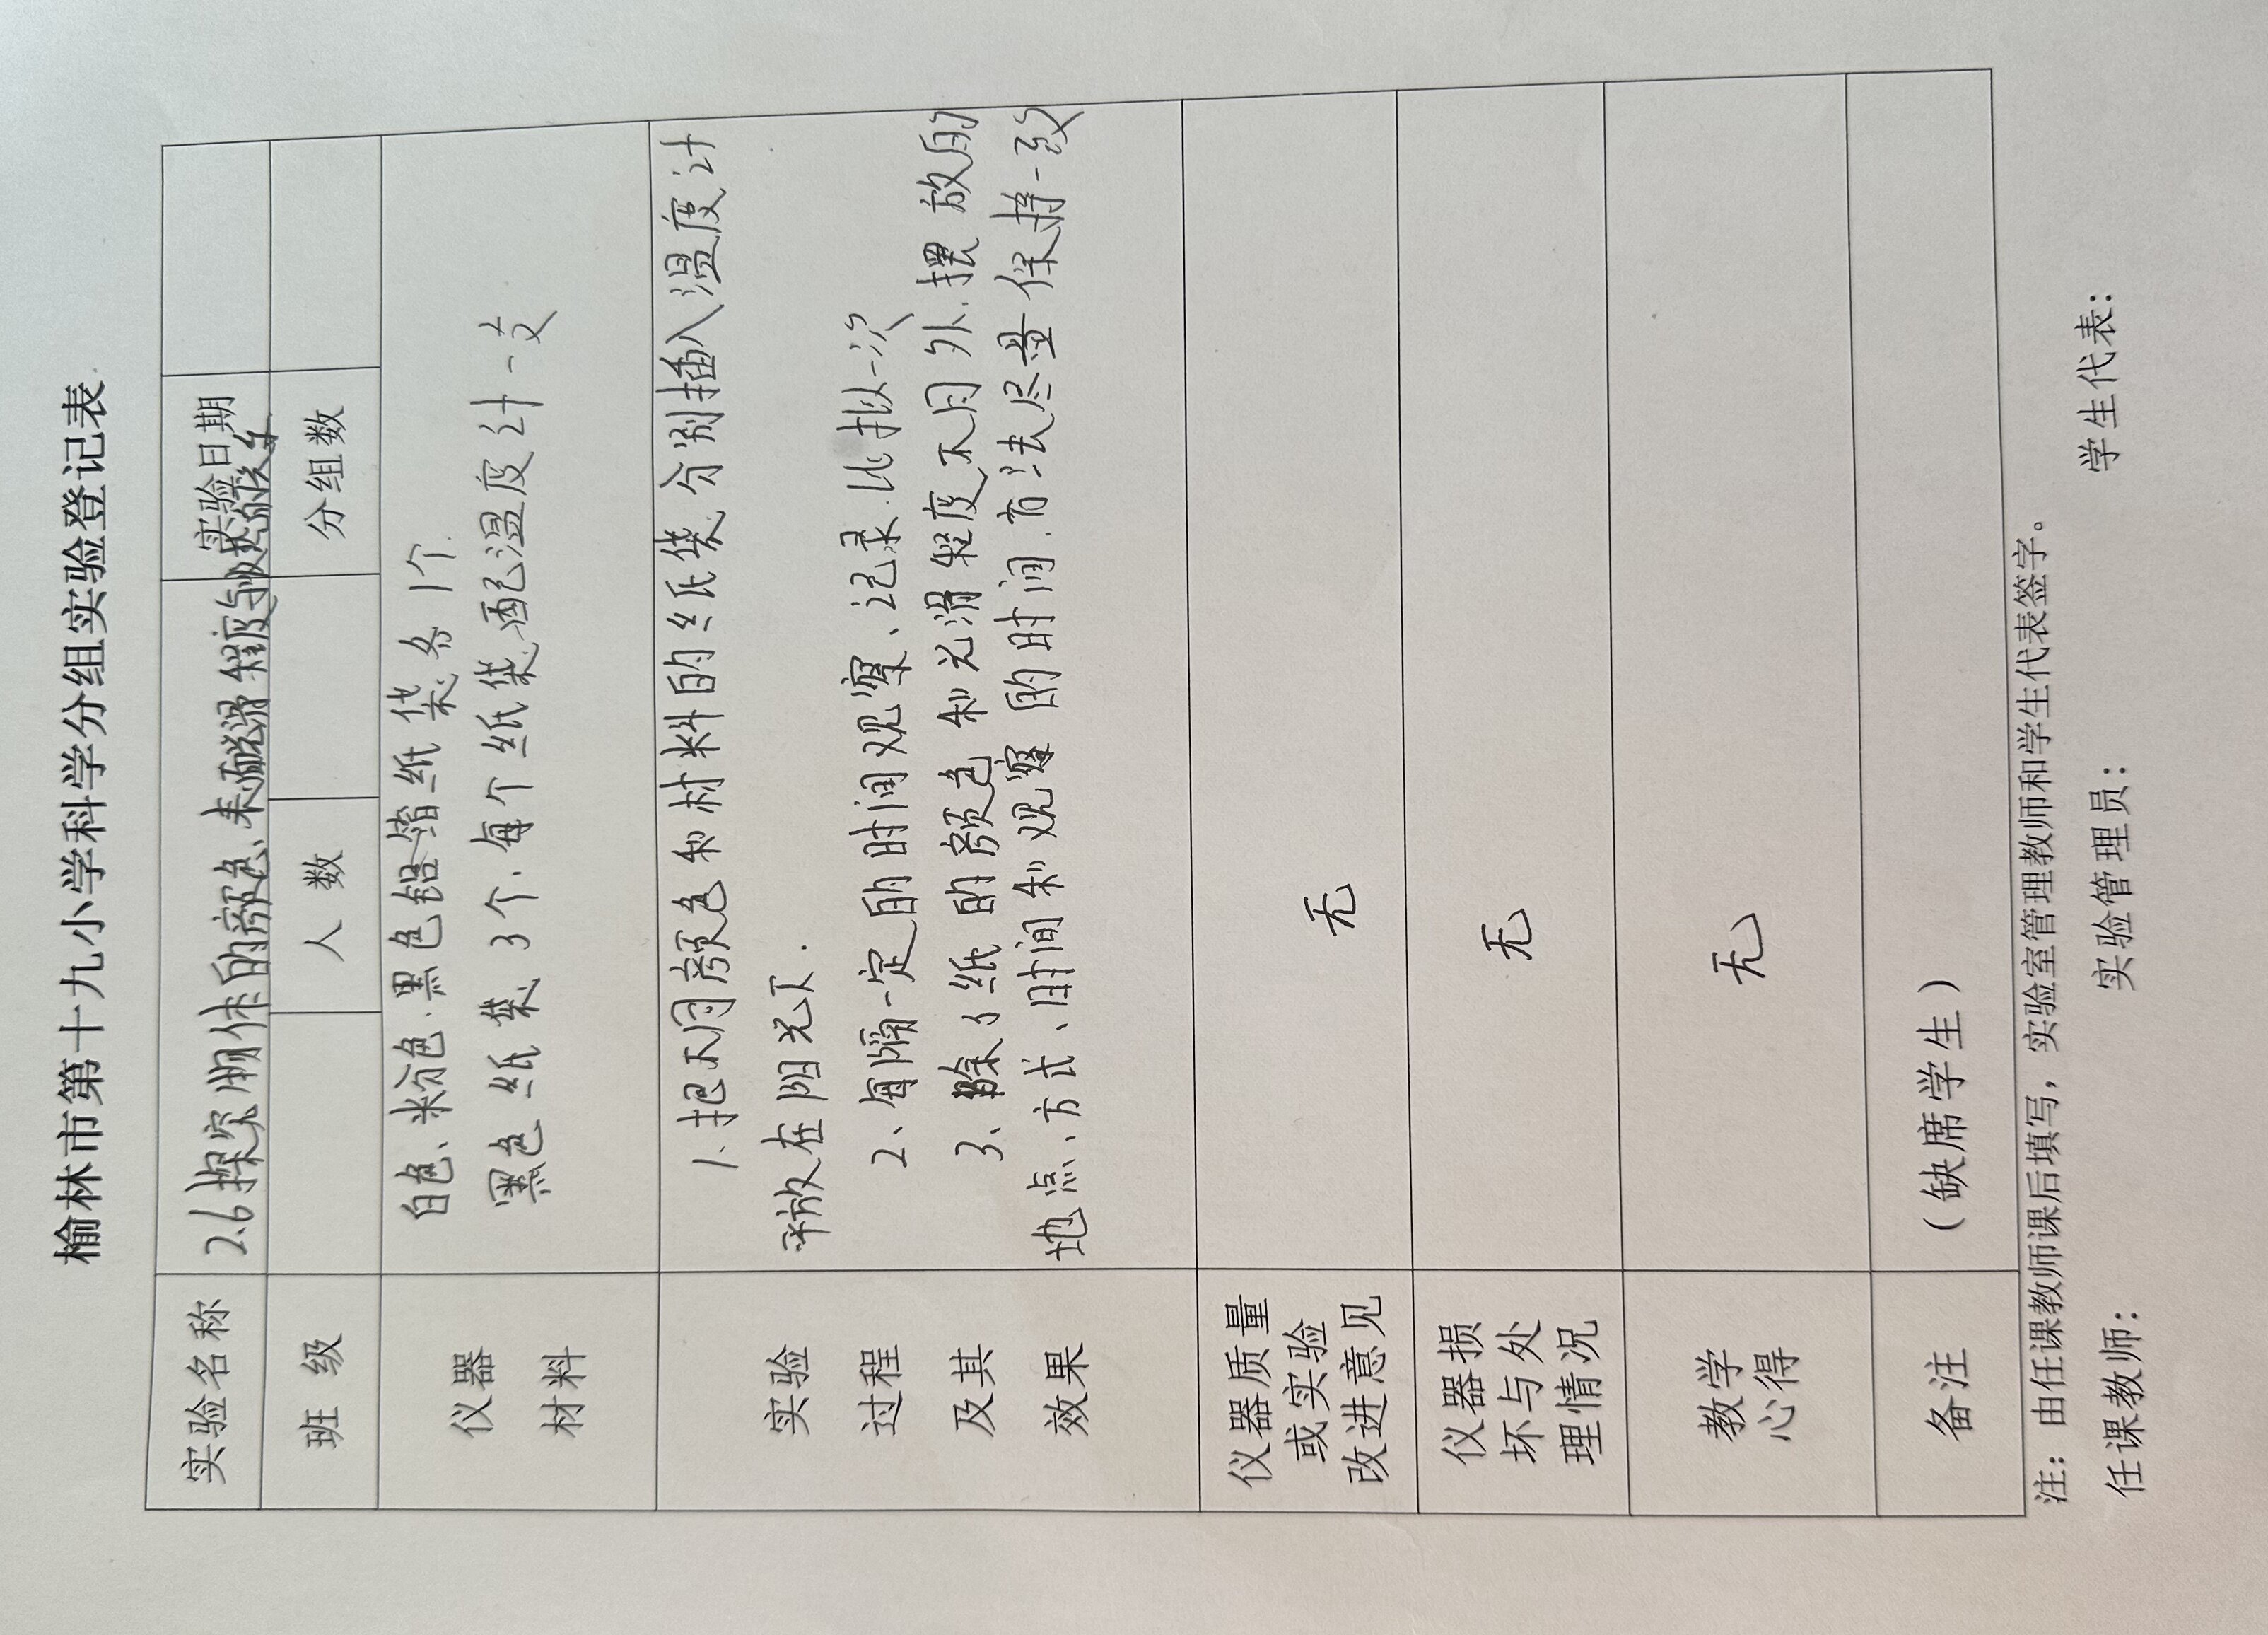 榆林市第十九小学科学分组实验登记表
实验名称 2.6探究物体的颜色、表面光滑程度与吸热的关系 实验日期
班 级 人 数 分组数
仪器
材料
白色、粉色、黑色铝箔纸袋各1个
黑色纸袋3个,每个纸袋配温度计一支
实验
过程
及其
效果
1、把不同颜色和材料的纸袋分别插入温度计
平放在阳光下.
2、每隔一定的时间观察、记录、比拟一次
3、除了纸的颜色和光滑程度不同外.摆放的
地点、方式、时间和观察的时间.方法尽量保持一致
仪器质量
或实验
改进意见
无
仪器损
坏与处
理情况
无
教学
心得
无
备注 (缺席学生)
注:由任课教师课后填写,实验室管理教师和学生代表签字。
任课教师: 实验管理员: 学生代表: